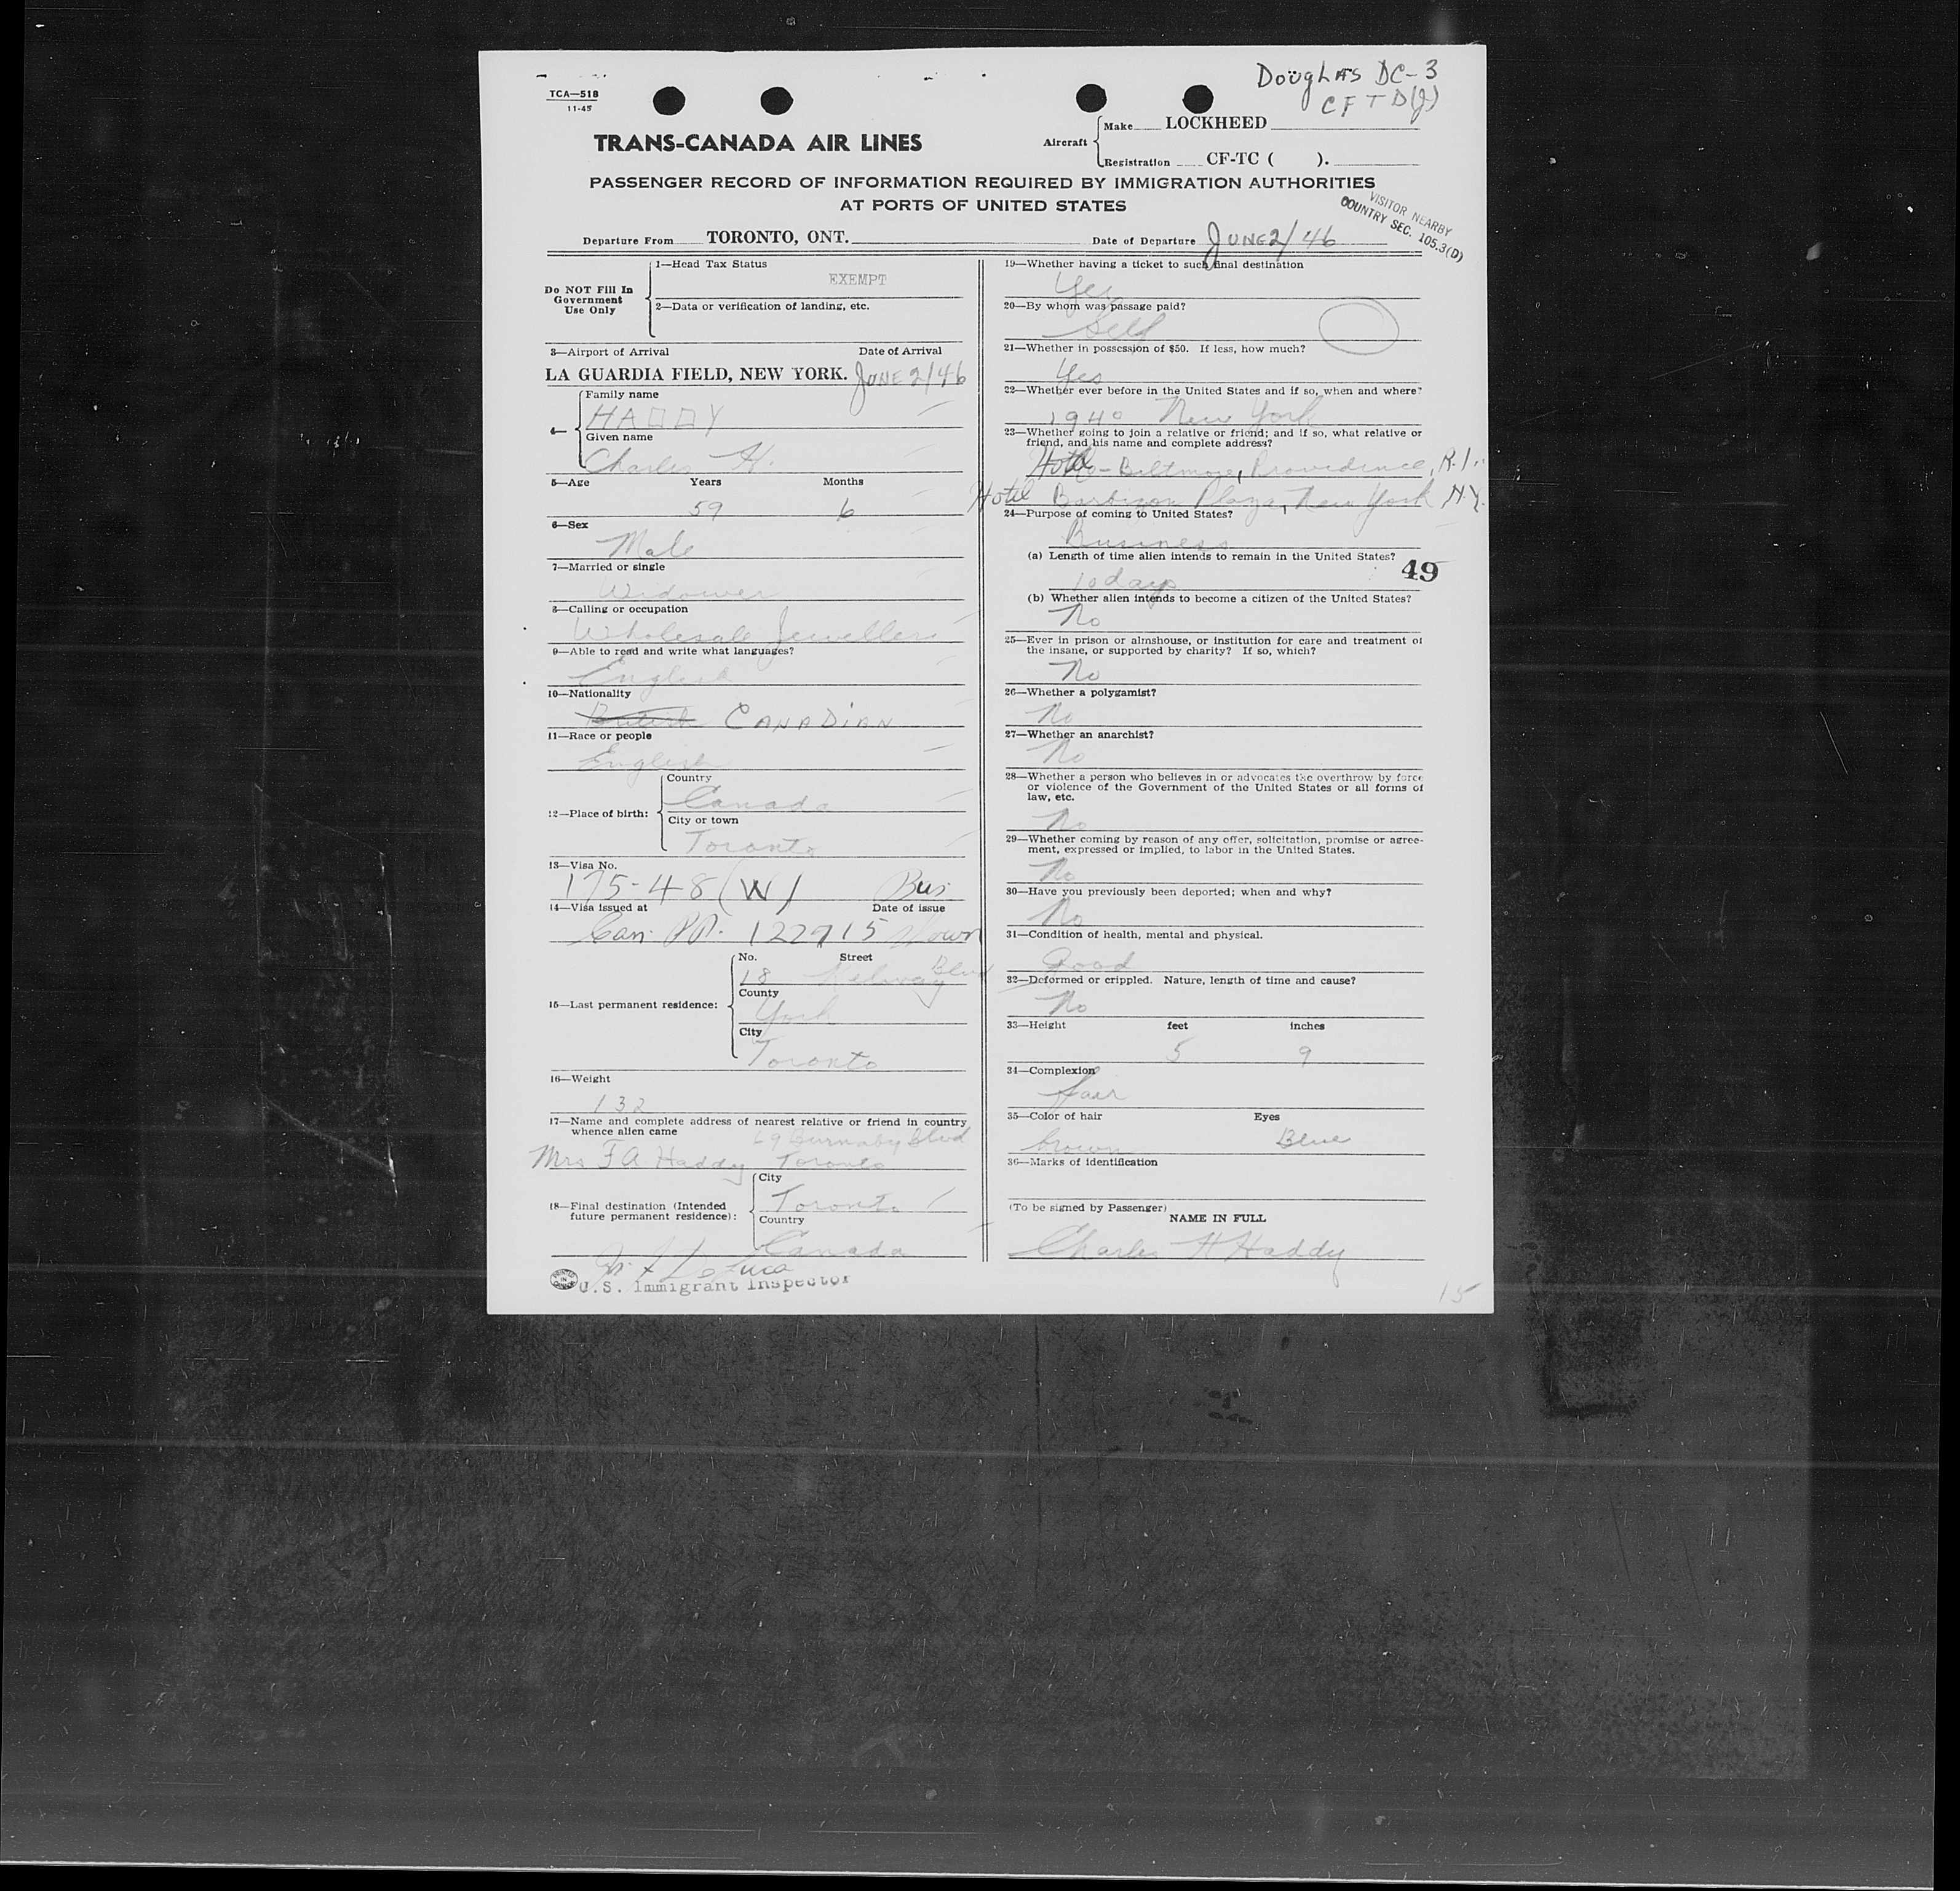 Douglas DC-3
CFTD(J)
TCA—518
11-45
TRANS-CANADA AIR LINES
Aircraft
Make LOCKHEED
Registration CF-TC ( ).
PASSENGER RECORD OF INFORMATION REQUIRED BY IMMIGRATION AUTHORITIES
AT PORTS OF UNITED STATES
VISITOR NEARBY
COUNTRY SEC. 105.3(D)
Departure From TORONTO, ONT. Date of Departure JUNE 2/46
Do NOT Fill In
Government
Use Only
1—Head Tax Status
EXEMPT
2—Data or verification of landing, etc.
3—Airport of Arrival Date of Arrival
LA GUARDIA FIELD, NEW YORK. JUNE 2/46
4—
Family name
HADDY
Given name
Charles H.
5—Age Years Months
59 6
6—Sex
Male
7—Married or single
Widower
8—Calling or occupation
Wholesale Jeweller
9—Able to read and write what languages?
English
10—Nationality
British CANADIAN
11—Race or people
English
12—Place of birth:
Country
Canada
City or town
Toronto
13—Visa No.
175-48(W) Bus.
14—Visa issued at Date of issue
Can. PP. 122715 shown
15—Last permanent residence:
No. Street
18 Blvd
County
York
City
Toronto
16—Weight
132
17—Name and complete address of nearest relative or friend in country
whence alien came
69 Burnaby Blvd
Mrs F A Haddy Toronto
18—Final destination (Intended
future permanent residence):
City
Toronto
Country
Canada
U.S. Immigrant Inspector
19—Whether having a ticket to such final destination
Yes
20—By whom was passage paid?
Self
21—Whether in possession of $50. If less, how much?
Yes
22—Whether ever before in the United States and if so, when and where?
1940 New York
23—Whether going to join a relative or friend; and if so, what relative or
friend, and his name and complete address?
Hotel - Biltmore, Providence, R.I.
Hotel Barbizon Plaza, New York N.Y.
24—Purpose of coming to United States?
Business
(a) Length of time alien intends to remain in the United States?
10 days
49
(b) Whether alien intends to become a citizen of the United States?
No
25—Ever in prison or almshouse, or institution for care and treatment of
the insane, or supported by charity? If so, which?
No
26—Whether a polygamist?
No
27—Whether an anarchist?
No
28—Whether a person who believes in or advocates the overthrow by force
or violence of the Government of the United States or all forms of
law, etc.
No
29—Whether coming by reason of any offer, solicitation, promise or agree-
ment, expressed or implied, to labor in the United States.
No
30—Have you previously been deported; when and why?
No
31—Condition of health, mental and physical.
Good
32—Deformed or crippled. Nature, length of time and cause?
No
33—Height feet inches
5 9
34—Complexion
fair
35—Color of hair Eyes
brown Blue
36—Marks of identification
(To be signed by Passenger)
NAME IN FULL
Charles H Haddy
15